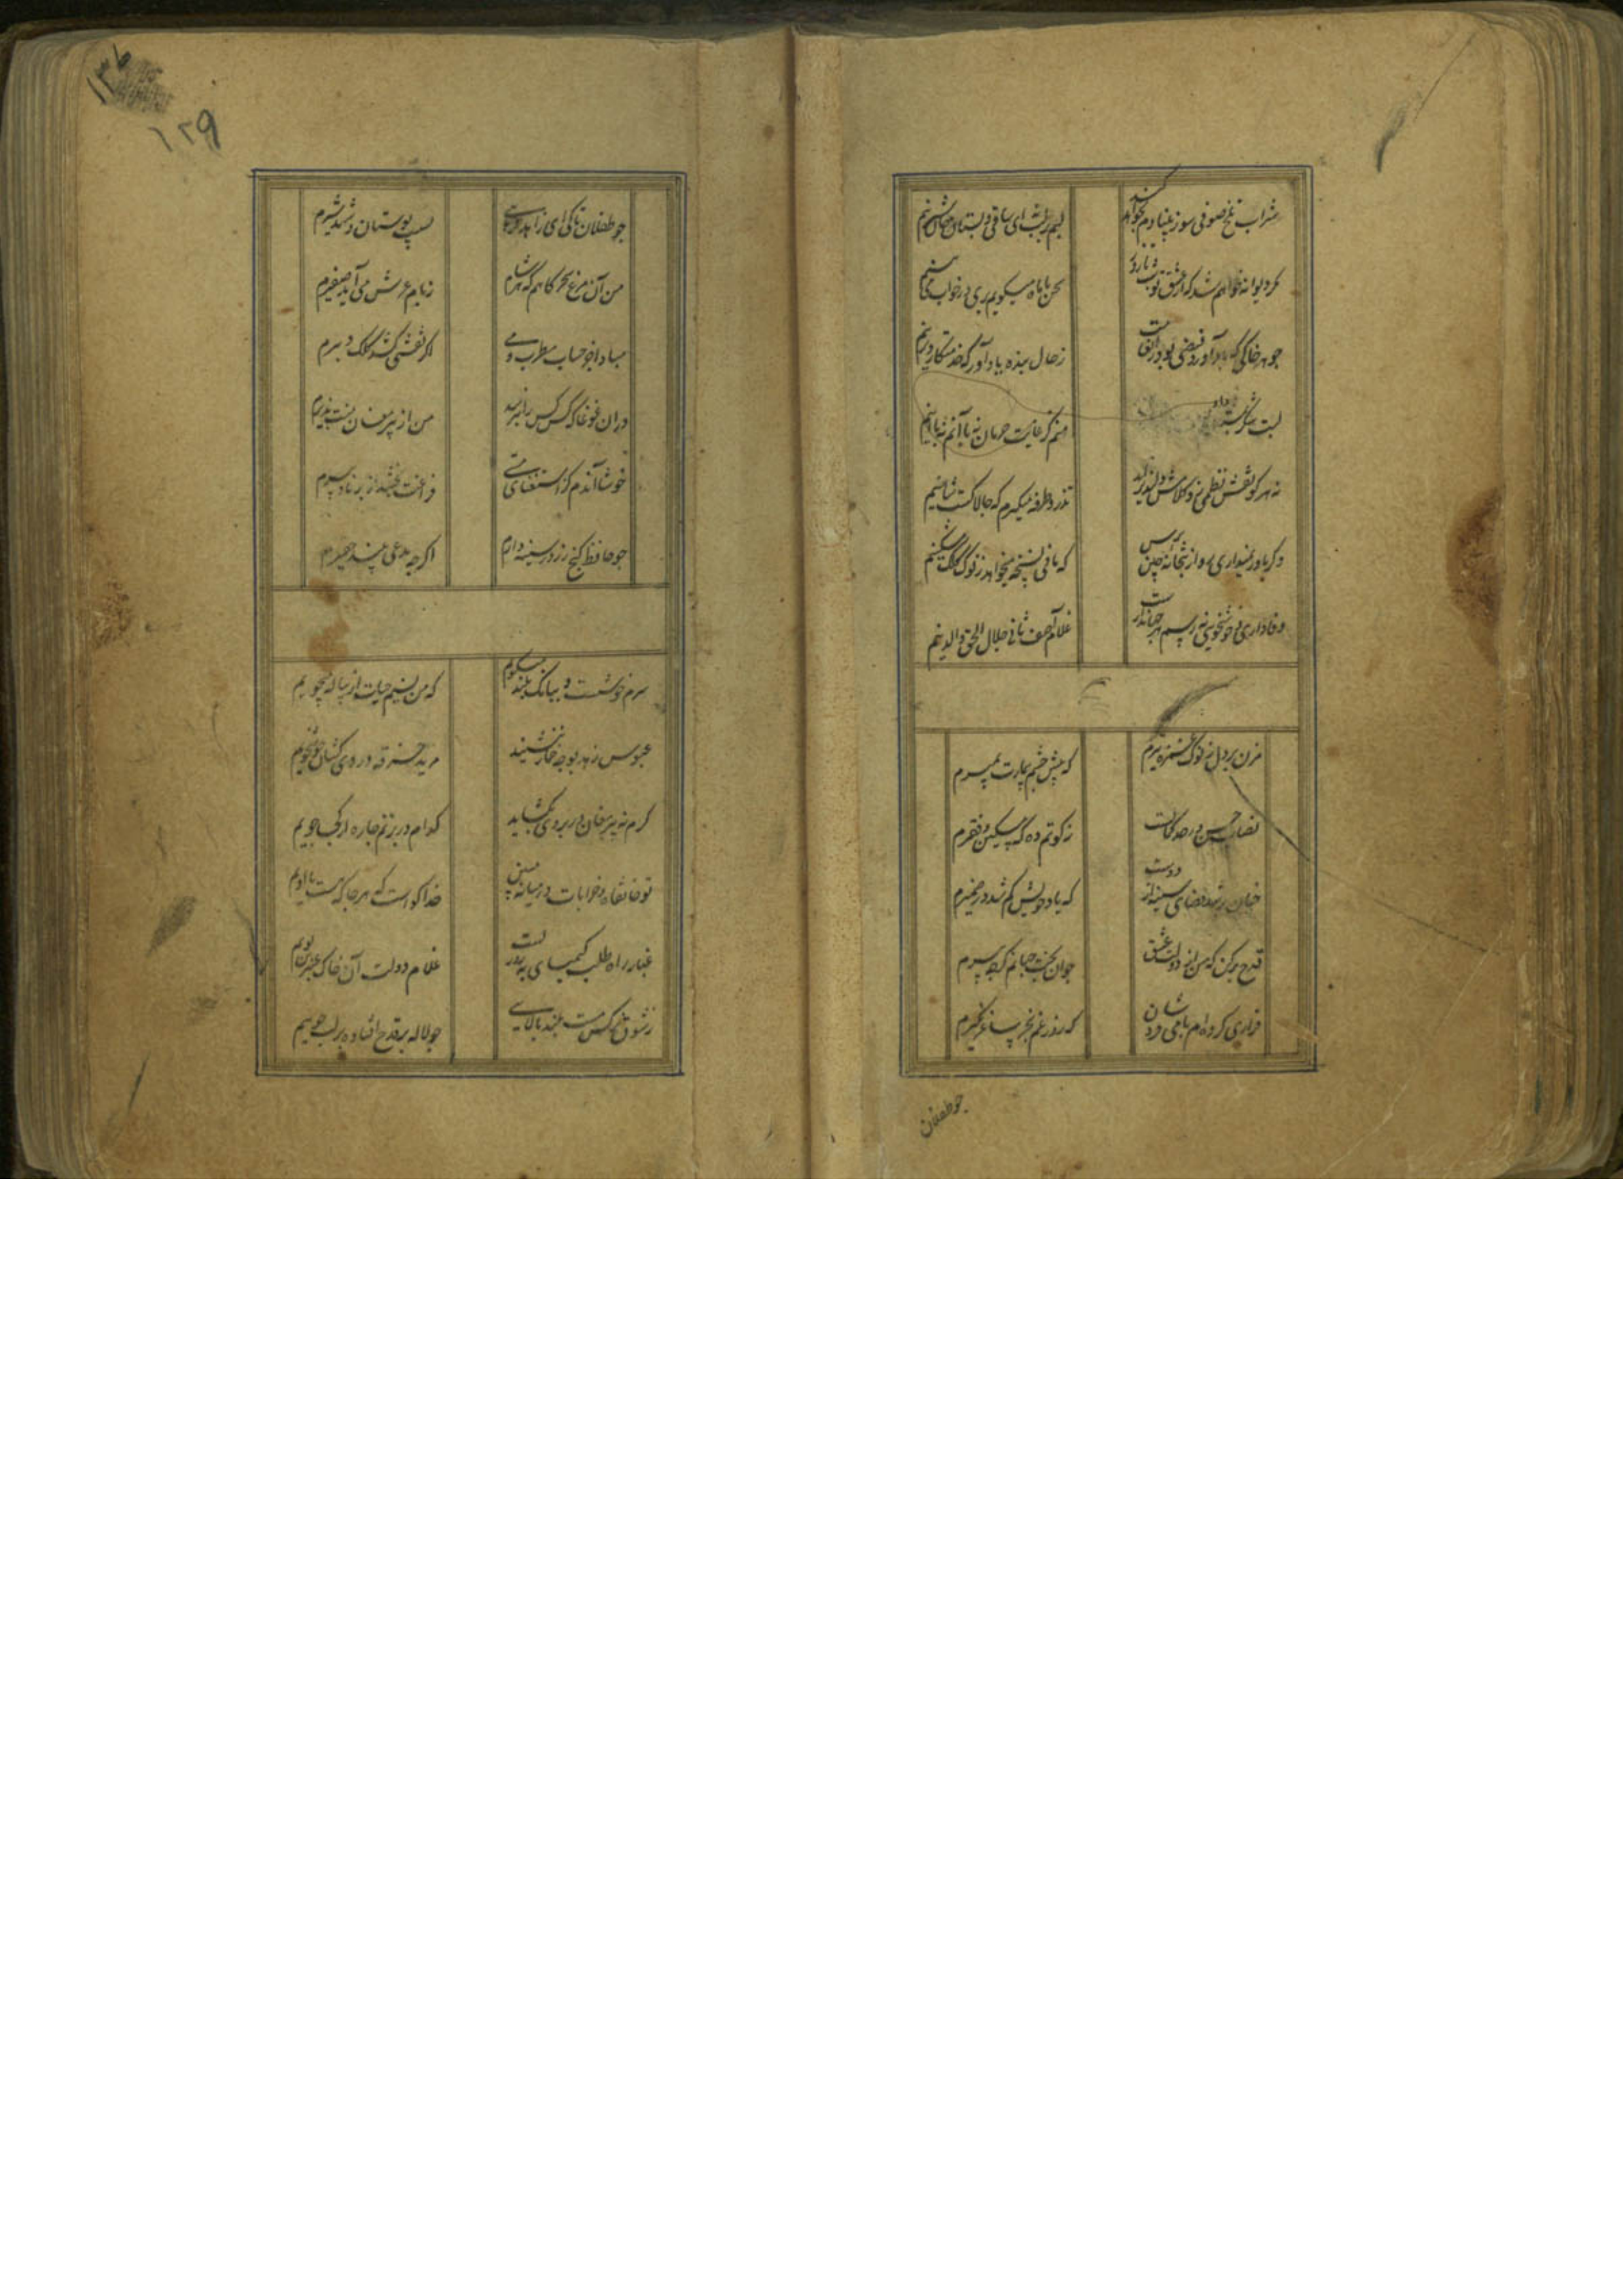 شراب تلخ صوفی سوز بنیادم بخواهد کند لبم بر لب نه ای ساقی و بستان جان شیرینم
مکر دیوانه خواهم شد که از عشق تو شب تا روز سخن با ماه میکویم بری در خواب می بینم
جو هر خاکی که باد آورد فیضی بود از انعامت ز حال بنده یاد آور که خدمتکار دیرینم
لبت شکر بمستان داد منم کز غایت حرمان نه با آنم نه با اینم
نه هر کو نقش نظمی زد کلامش دلپذیر آید تذرو طرفه میکیرم که جالاکست شاهینم
و کر باور نمیداری رو از بتخانه چین برس که مانی نسخه میخواهد ز نوک کلک مشکینم
وفاداری و خوشخویی نه رسم هر جهاندارست غلام آصف ثانی جلال الحق و الدینم
مزن بر دل ز نوک غمزه تیرم که پیش چشم بیمارت بمیرم
نصاب حسن در حد کمالست زکوتم ده که مسکین و فقیرم
جنان پر شد فضای سینه از دوست که یاد خویش کم شد در ضمیرم
قدح پر کن که من از دولت عشق جوان بخت جهانم کرجه پیرم
قراری کرده ام با می فروشان که روز غم بجز ساغر نکیرم
جو طفلان
۱۳۶
۱۲۹
جو طفلان تا کی ای زاهد فریبی بسیب بوستان و شهد و شیرم
من آن مرغم که هر شام و سحرکاه ز بام عرش می آید صفیرم
مبادا جز حساب مطرب و می اکر نقشی کشد کلک دبیرم
در ان غوغا که کس کس را نپرسد من از پیر مغان منت پذیرم
خوشا آندم کز استغنای مستی فراغت بخشد از برنا و پیرم
جو حافظ کنج زر در سینه دارم اکر جه مدعی بیند حقیرم
سرم خوشست و ببانک بلند میکویم که من نسیم حیات از پیاله میجویم
عبوس زهد بوجه خمار ننشیند مرید خرقه دردی کشان خوشخویم
کرم نه پیر مغان در بروی بکشاید کدام در بزنم جاره از کجا جویم
تو خانقاه و خرابات در میانه مبین خدا کواست که هر جا که هست با اویم
غبار راه طلب کیمیای بهروزیست غلام دولت آن خاک عنبرین بویم
ز شوق نرکس مست بلند بالایی جو لاله با قدح افتاده بر لب جویم